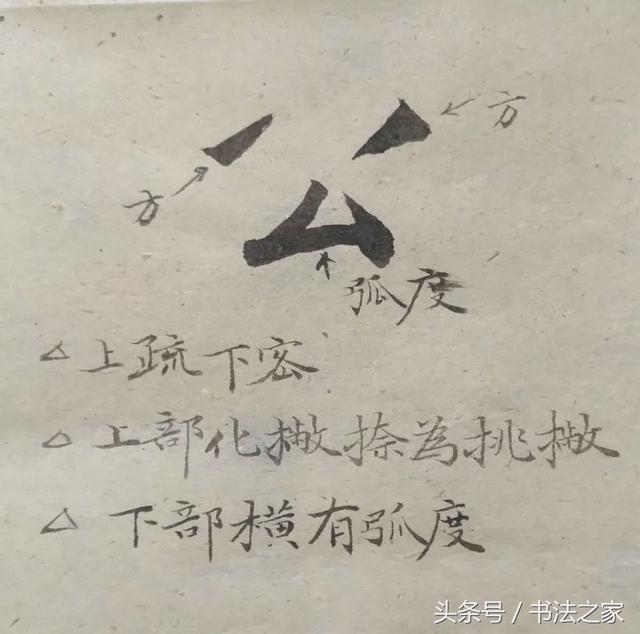 公
方
方
弧度
△上疏下密
△上部化撇捺為挑撇
△下部橫有弧度
头条号/书法之家